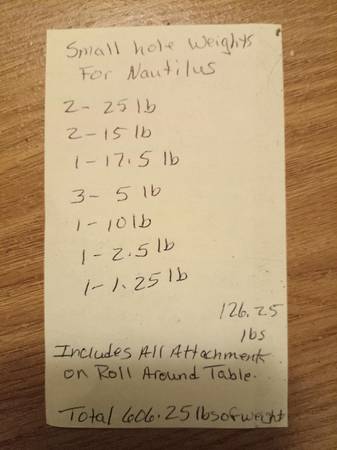 Small hole Weights
For Nautilus
2- 25 lb
2- 15 lb
1- 17.5 lb
3- 5 lb
1- 10 lb
1- 2.5 lb
1- 1.25 lb
126.25
lbs
Includes All Attachments
on Roll Around Table.
Total 606.25 lbs of weight